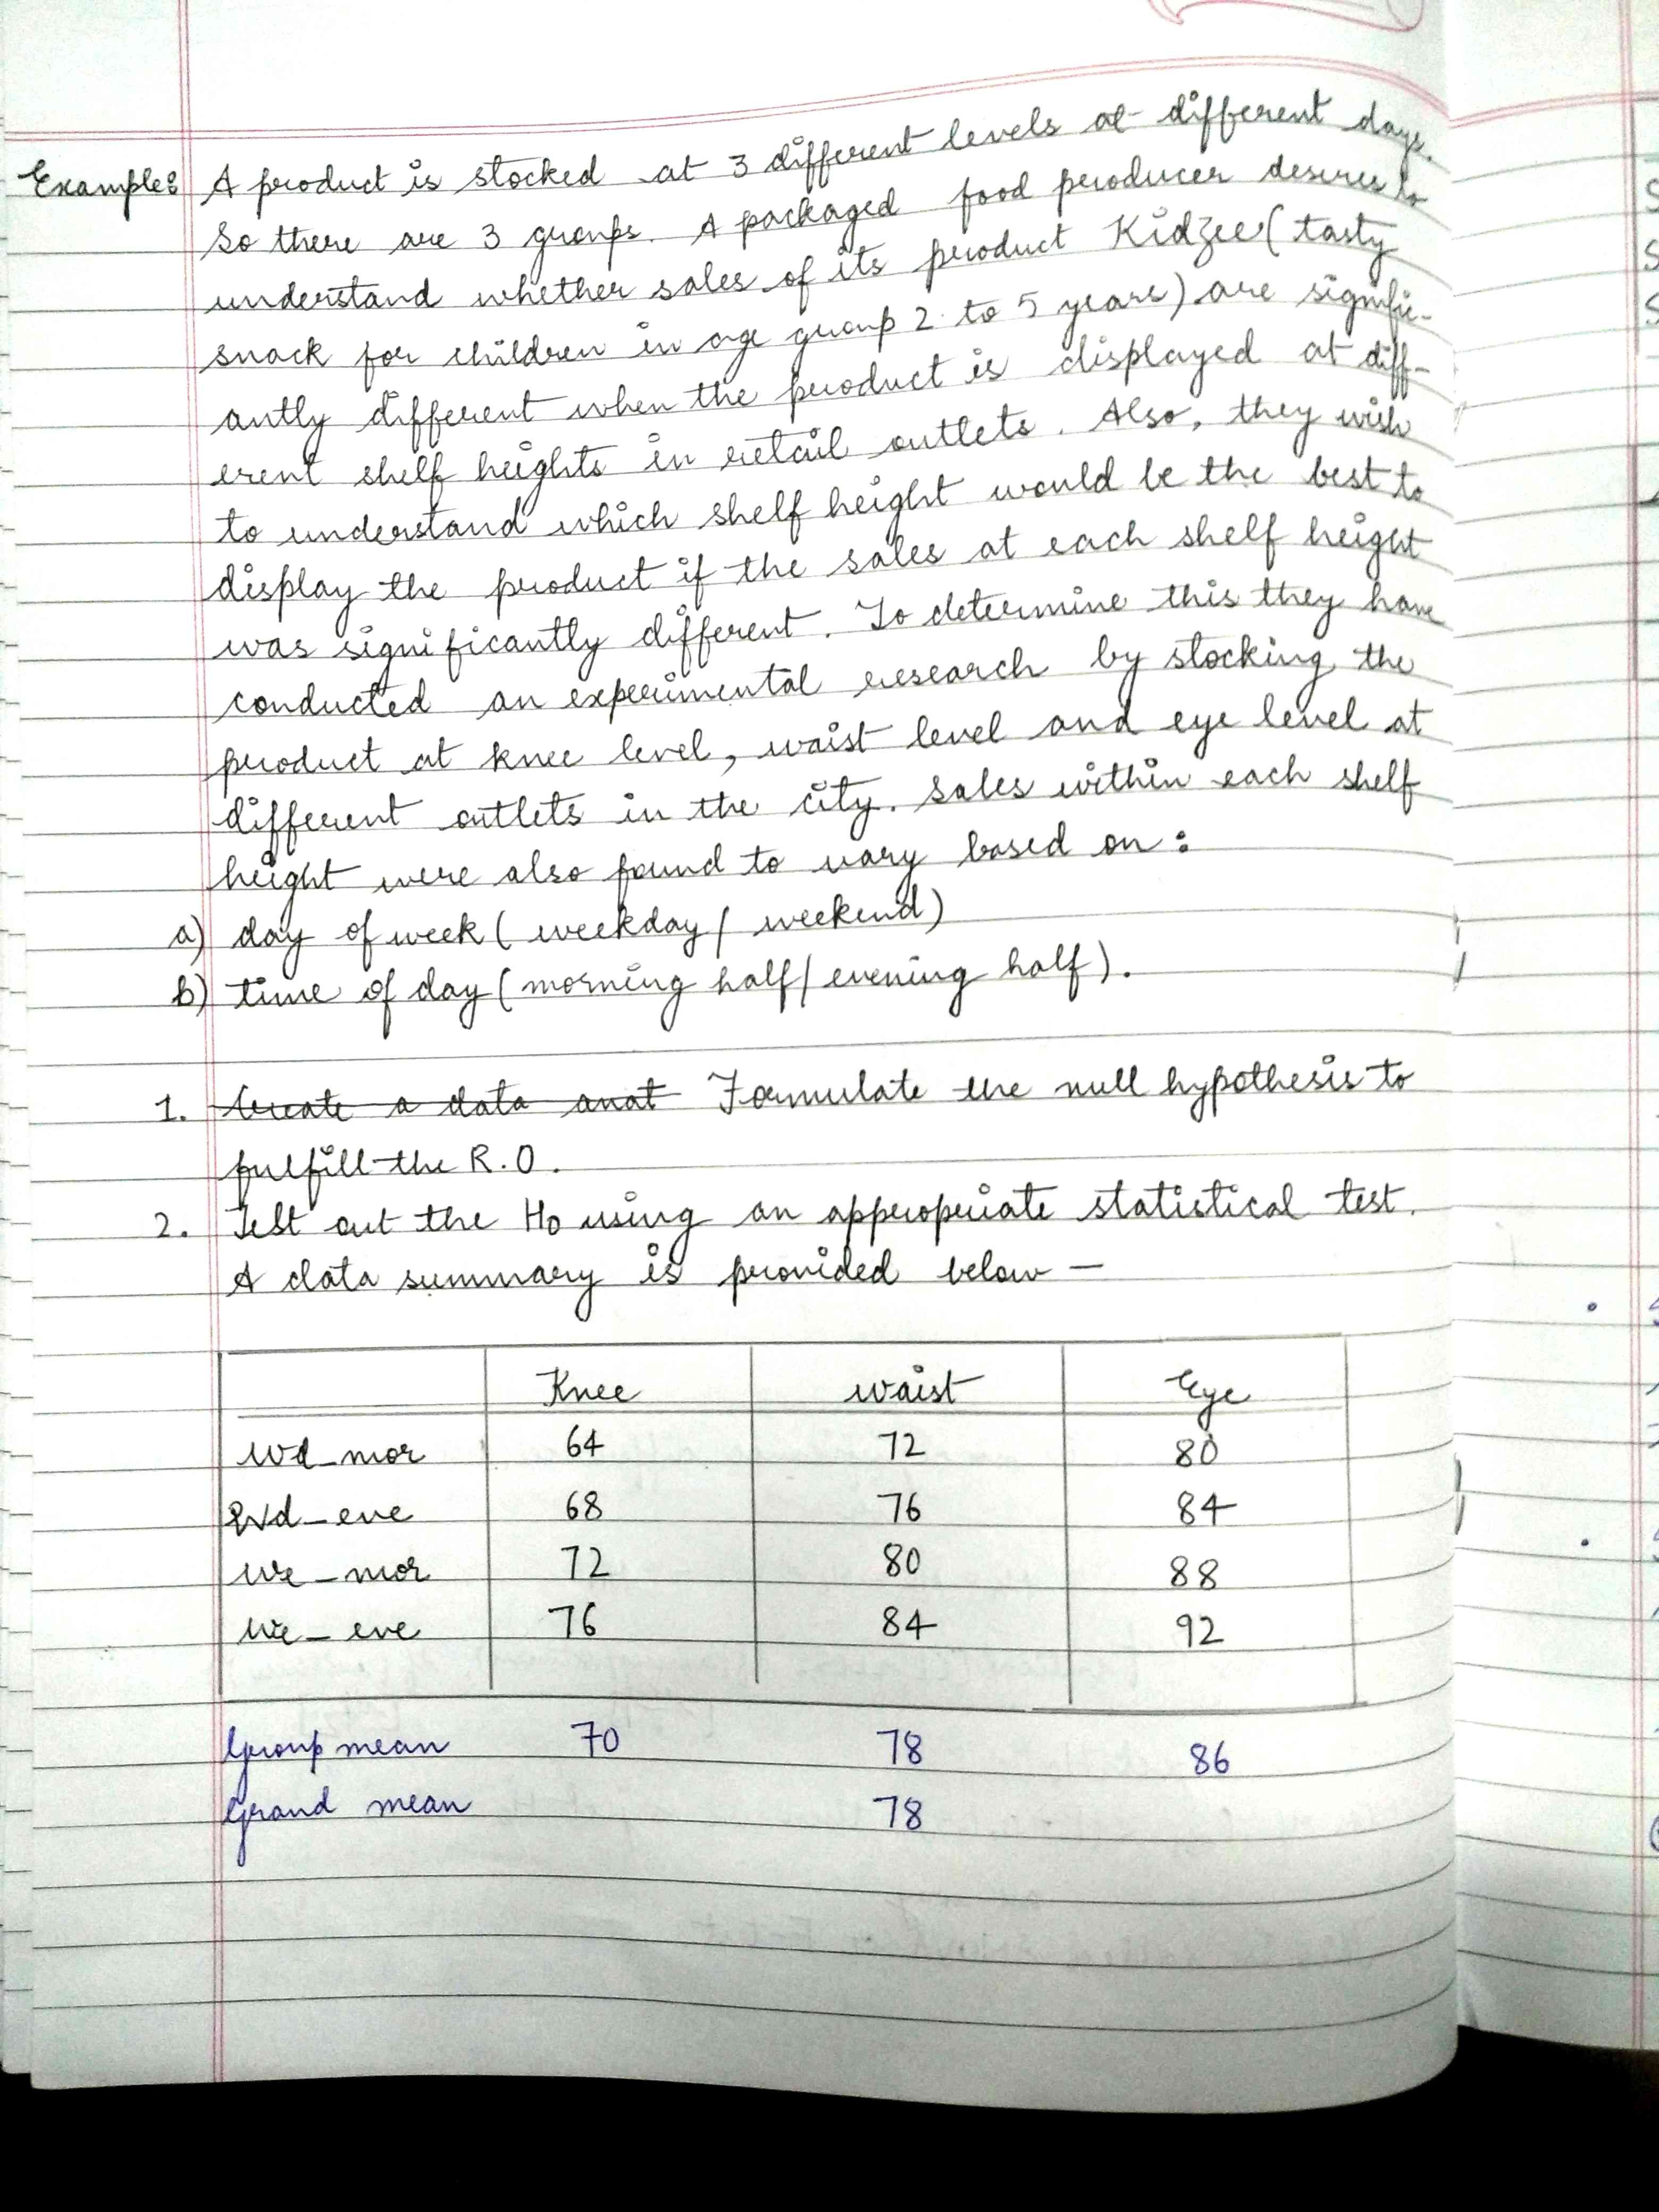 Example: A product is stocked at 3 different levels at different days.
So there are 3 groups. A packaged food producer desires to
understand whether sales of its product Kidzee (tasty
snack for children in age group 2 to 5 years) are signifi-
antly different when the product is displayed at diff-
erent shelf heights in retail outlets. Also, they wish
to understand which shelf height would be the best to
display the product if the sales at each shelf height
was significantly different. To determine this they have
conducted an experimental research by stocking the
product at knee level, waist level and eye level at
different outlets in the city. Sales within each shelf
height were also found to vary based on:
a) day of week (weekday / weekend)
b) time of day (morning half / evening half).
1. Create a data anat Formulate the null hypothesis to
fulfill the R.O.
2. Test out the Ho using an appropriate statistical test.
A data summary is provided below —
Knee waist Eye
wd_mor 64 72 80
Wd_eve 68 76 84
we_mor 72 80 88
we_eve 76 84 92
Group mean 70 78 86
Grand mean 78